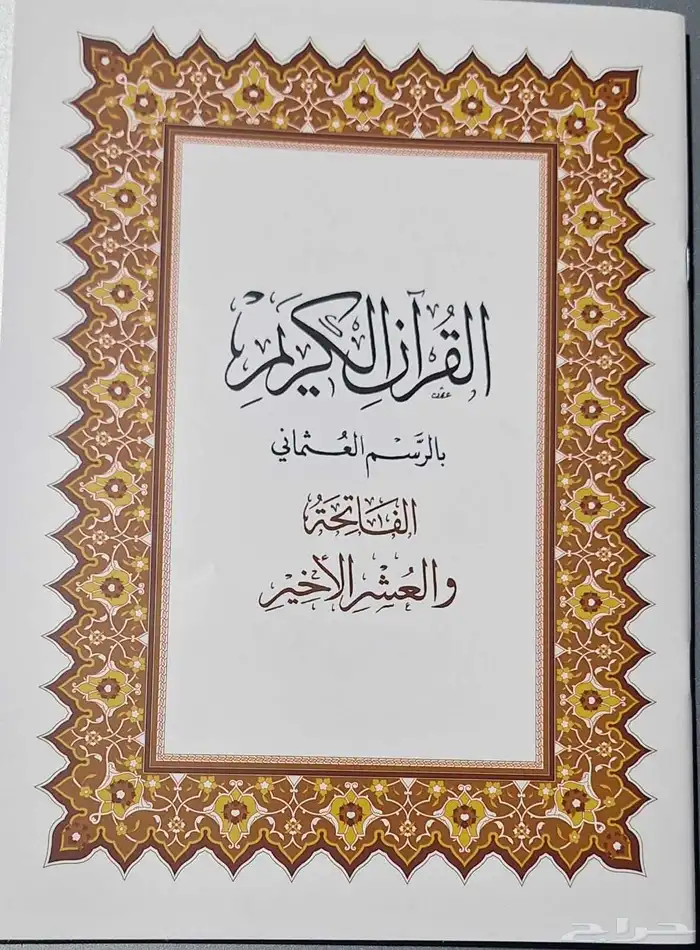 القُرآن الكَرِيم
بالرَّسْم العُثماني
الفَاتِحَةُ
والعُشْرِ الأَخِيْرِ
حراج